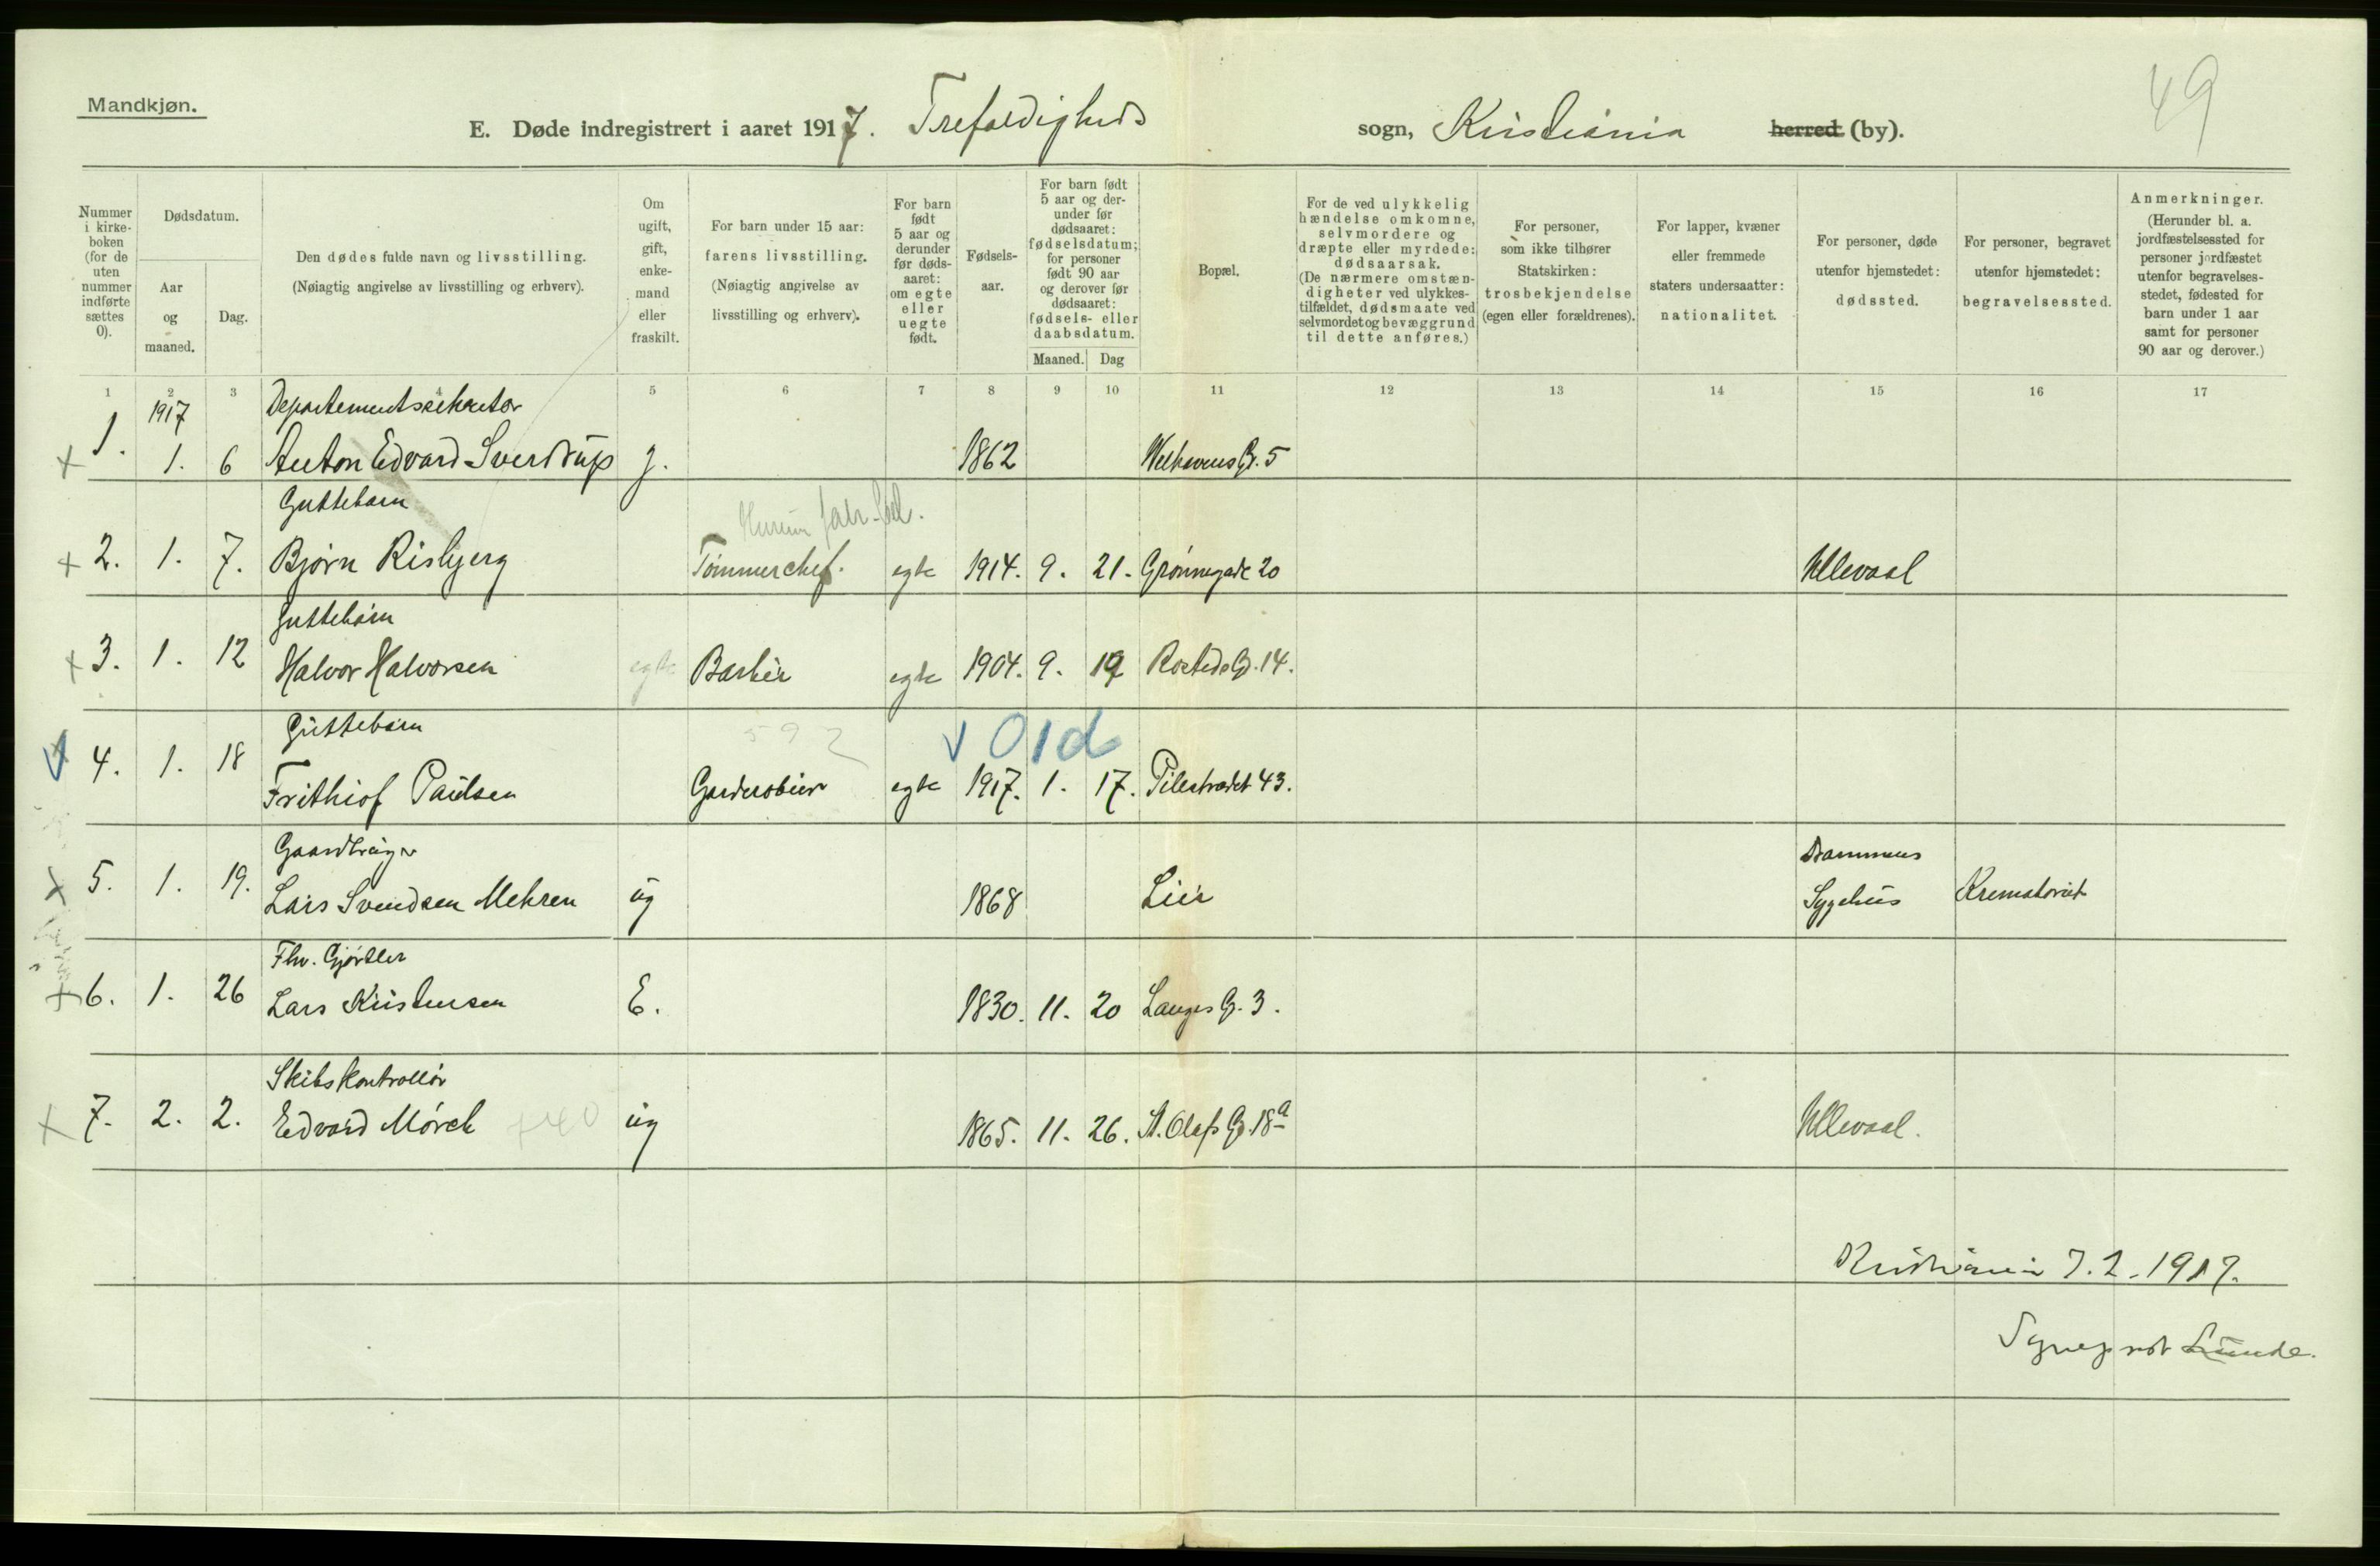 49
Mandkjøn.
E. Døde indregistrert i aaret 1917. Trefoldigheds sogn, Kristiania herred (by).
Nummer i kirke-boken (for de uten nummer indførte sættes 0).
Dødsdatum.
Aar og maaned.
Dag.
Den dødes fulde navn og livsstilling.
(Nøiagtig angivelse av livsstilling og erhverv).
Om ugift, gift, enke-mand eller fraskilt.
For barn under 15 aar: farens livsstilling. (Nøiagtig angivelse av livsstilling og erhverv).
For barn født 5 aar og derunder før døds-aaret: om egte eller uegte født.
Fødsels-aar.
For barn født 5 aar og der-under før dødsaaret: fødselsdatum; for personer født 90 aar og derover før dødsaaret: fødsels- eller daabsdatum.
Maaned. Dag
Bopæl.
For de ved ulykkelig hændelse omkomne, selvmordere og dræpte eller myrdede: dødsaarsak. (De nærmere omstæn-digheter ved ulykkes-tilfældet, dødsmaate ved selvmordet og bevæggrund til dette anføres.)
For personer, som ikke tilhører Statskirken: trosbekjendelse (egen eller forældrenes).
For lapper, kvæner eller fremmede staters undersaatter: nationalitet.
For personer, døde utenfor hjemstedet: dødssted.
For personer, begravet utenfor hjemstedet: begravelsessted.
Anmerkninger. (Herunder bl. a. jordfæstelsessted for personer jordfæstet utenfor begravelses-stedet, fødested for barn under 1 aar samt for personer 90 aar og derover.)
1 2 3 4 5 6 7 8 9 10 11 12 13 14 15 16 17
1917 Departementssekretær
1. 1. 6 Anton Edvard Sverdrup g. 1862 Welhavens G. 5
Guttebarn
2. 1. 7. Bjørn Risbjerg Tømmerchef. egte 1914. 9. 21. Grønnegade 20 Ullevaal
Guttebarn
3. 1. 12 Halvor Halvorsen egte Barbér egte 1904. 9. 19 Rosteds G. 14.
Guttebarn 592 v 01d
4. 1. 18 Frithiof Paulsen Garderobier egte 1917. 1. 17. Pilestrædet 43.
Gaardbruger Drammens
5. 1. 19. Lars Svendsen Mehren ug 1868 Lier Sygehus Krematoriet
Fhv. Gjørtler
6. 1. 26 Lars Kristensen E. 1830. 11. 20 Langes G. 3.
Skibskontrollør
7. 2. 2. Edvard Mørch 740 ug 1865. 11. 26. St. Olafs G. 18a Ullevaal.
Kristiania 7.2.1917.
Lunde.